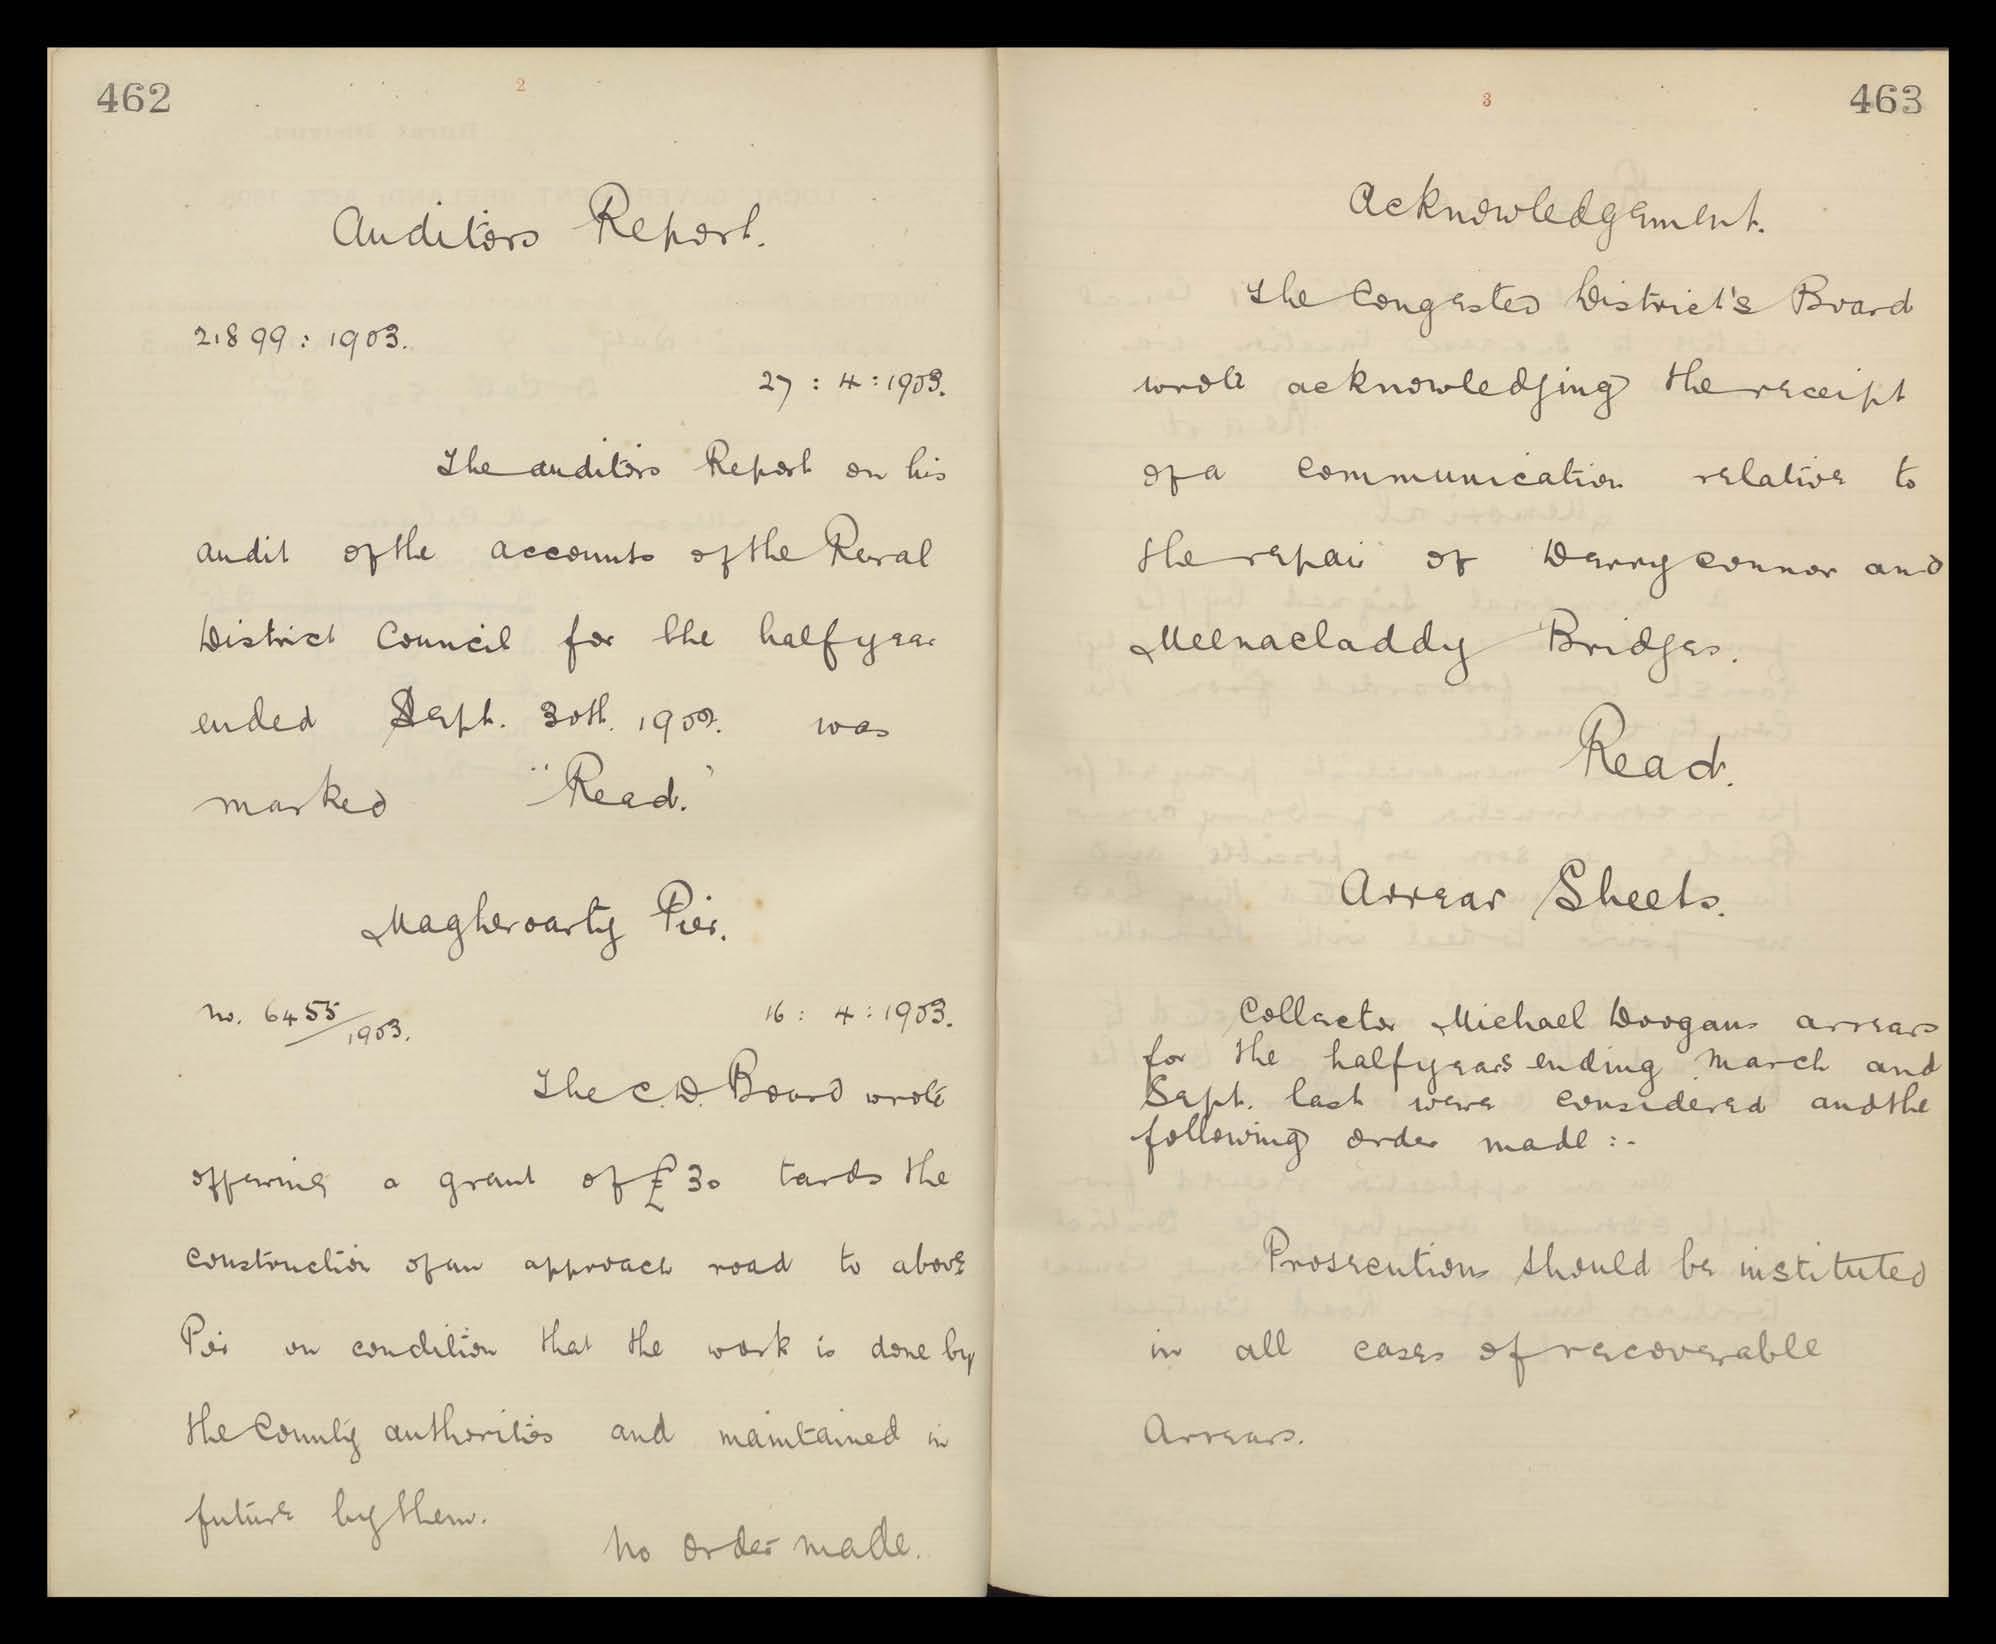 462
2
Auditors Report.
21899 : 1903.
27 : 4 : 1903.
The auditors Report on his
audit of the accounts of the Rural
District Council for the halfyear
ended Sept. 30th. 1902. was
marked "Read."
Magheroarty Pier.
No. 6455/1903.
16 : 4 : 1903.
The C.D. Board wrote
offering a grant of £30 tards the
construction of an approach road to above
Pier on condition that the work is done by
the County authorities and maintained in
future by them.
No order made.
463
3
Acknowledgement.
The Congested District's Board
wrote acknowledging the receipt
of a communication relative to
the repair of Derryconnor and
Meenacladdy Bridges.
Read.
Arrear Sheets.
Collector Michael Doogans arrears
for the halfyears ending March and
Sept. last were considered and the
following order made :-
Prosecutions should be instituted
in all cases of recoverable
Arrears.